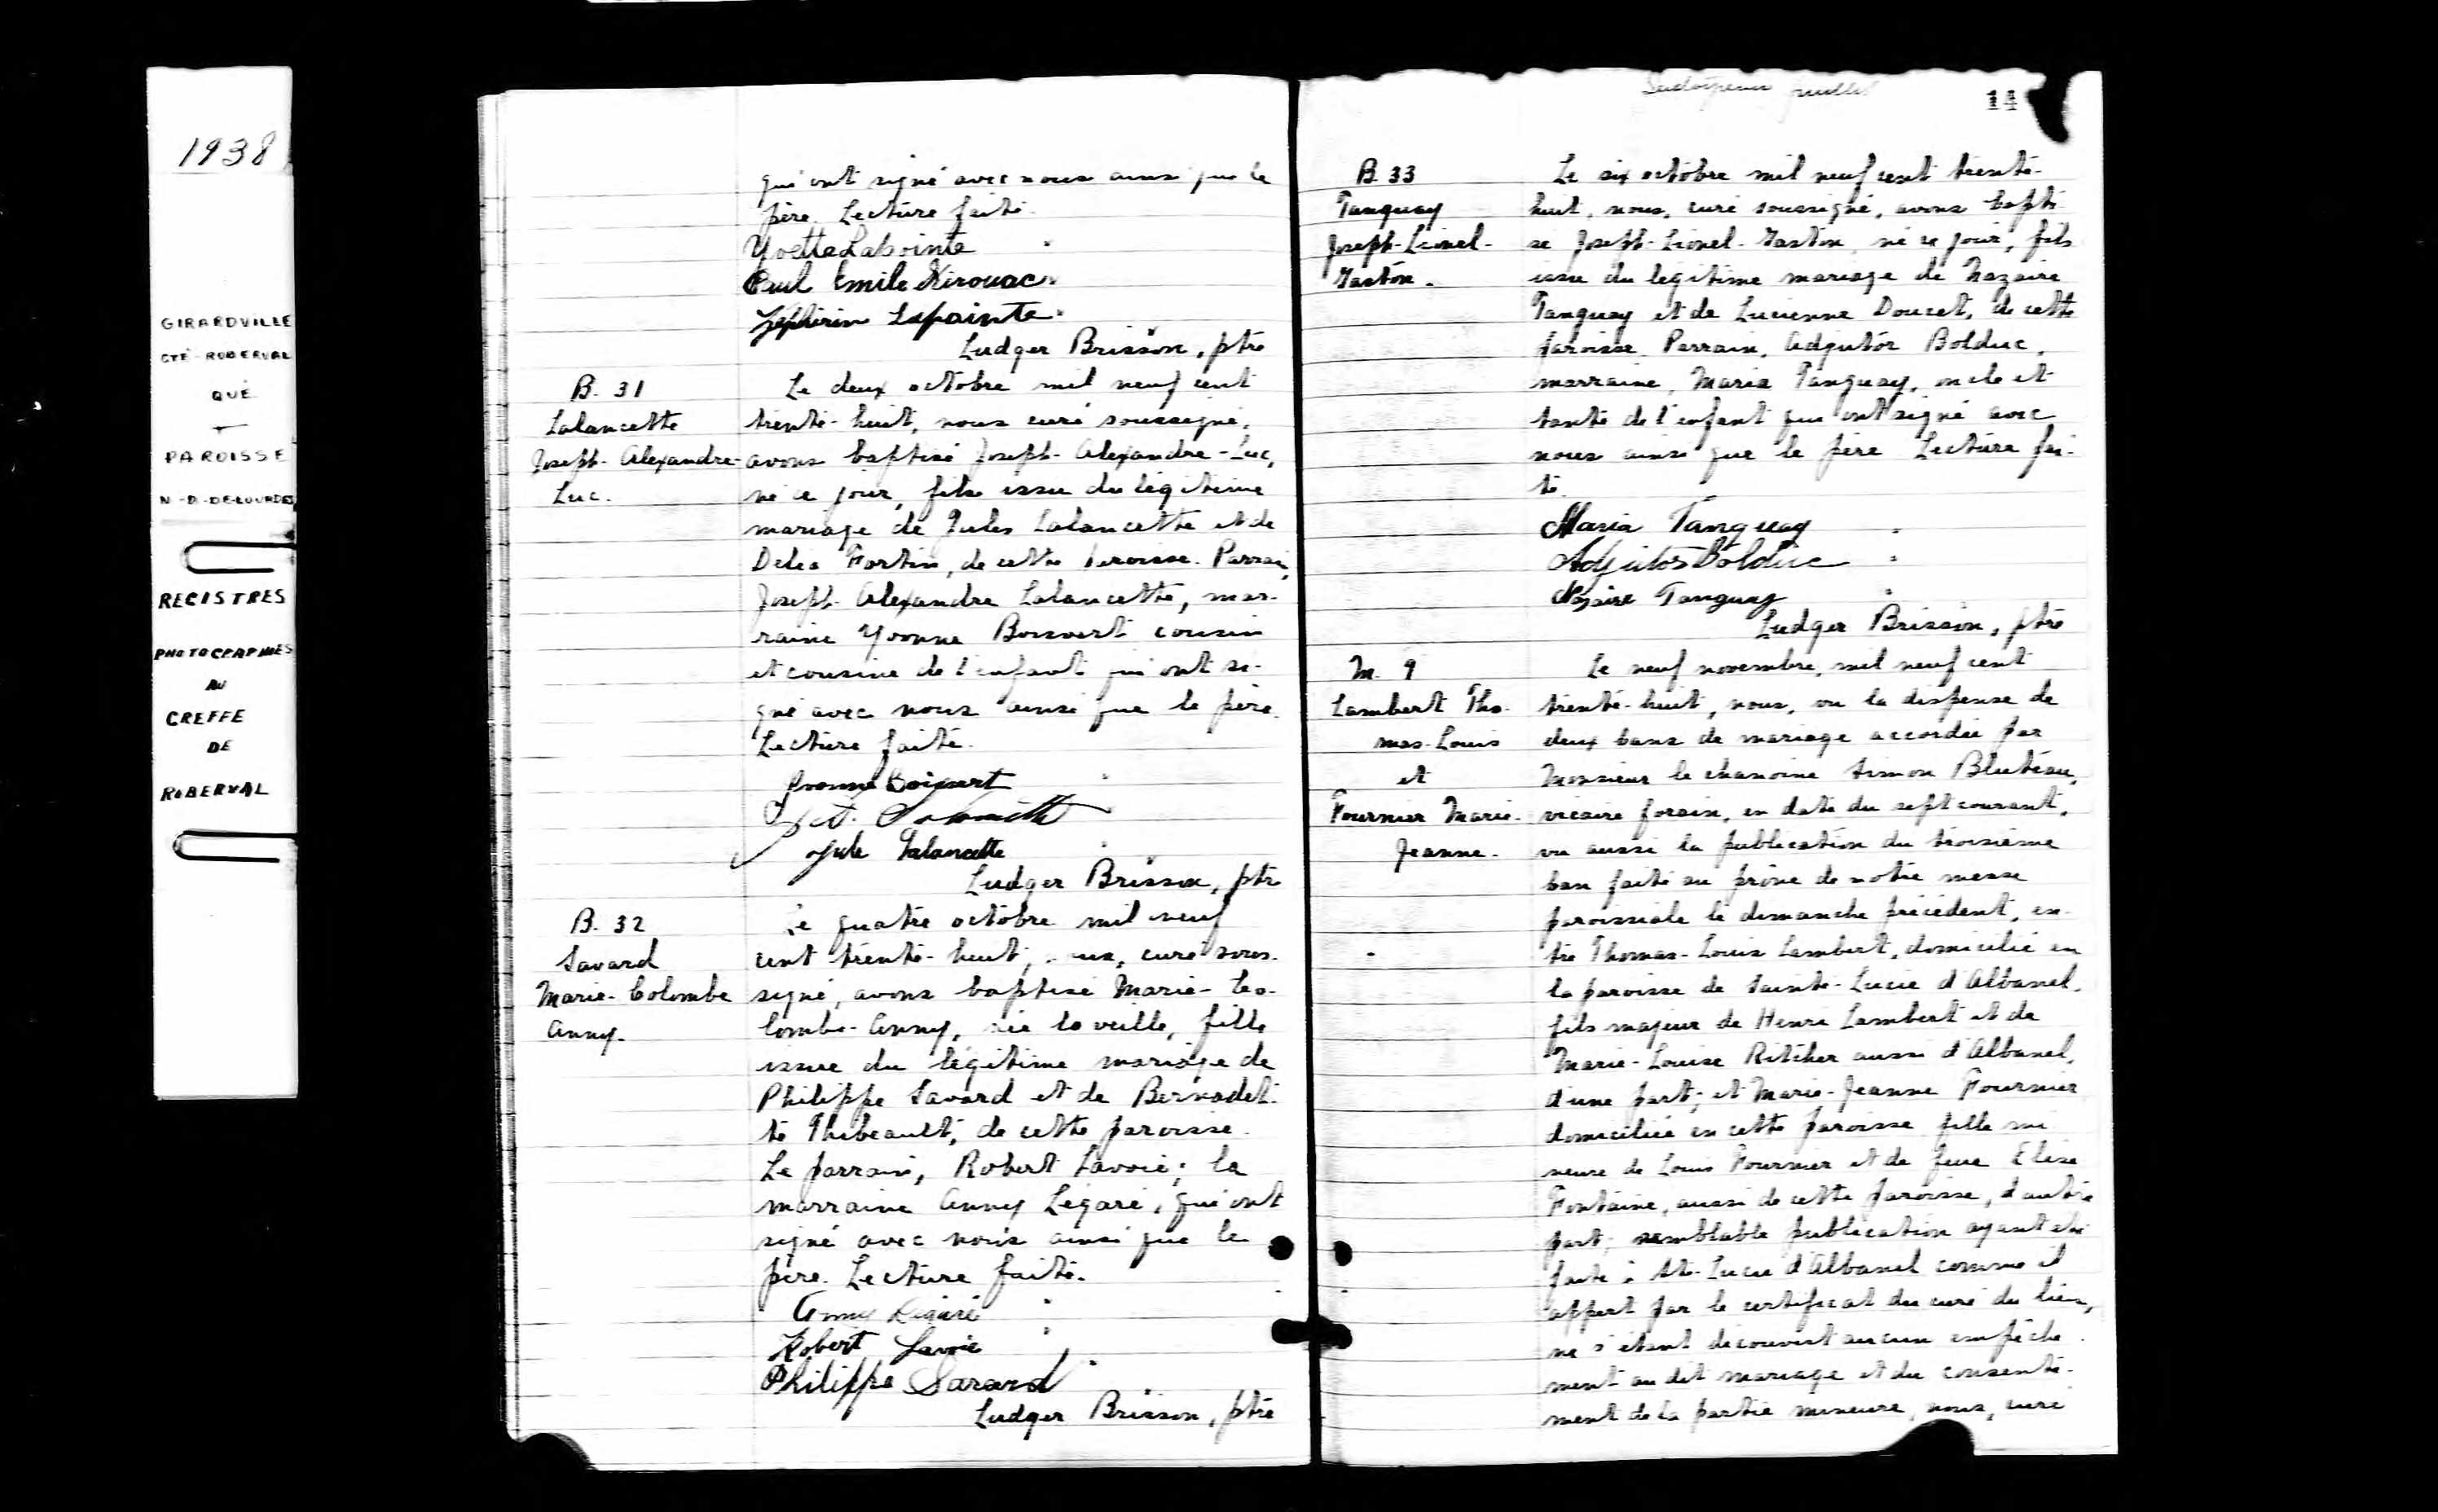 1938
GIRARDVILLE
CTÉ - ROBERVAL
QUÉ.
PAROISSE
N.-D.-DE LOURDES
REGISTRES
PHOTOGRAPHIÉS
AU
GREFFE
DE
ROBERVAL
qui ont signé avec nous ainsi que le
père. Lecture faite.
Yvette Lapointe
Paul Emile Kirouac
Zéphirin Lapointe
Ludger Brisson, ptre
B. 31
Lalancette
Joseph-Alexandre-
Luc.
Le deux octobre mil neuf cent
trente-huit, nous curé soussigné,
avons baptisé Joseph-Alexandre-Luc,
né ce jour, fils issu du légitime
mariage de Jules Lalancette et de
Délia Fortin, de cette paroisse. Parrain,
Joseph-Alexandre Lalancette, mar-
raine Yvonne Boisvert cousin
et cousine de l'enfant qui ont si-
gné avec nous ainsi que le père.
Lecture faite.
Yvonne Boisvert
Jules Lalancette
Ludger Brisson, ptre
B. 32
Savard
Marie-Colombe
Anny.
Le quatre octobre mil neuf
cent trente-huit, nous, curé sous-
signé, avons baptisé Marie-Co-
lombe-Anny, née la veille, fille
issue du légitime mariage de
Philippe Savard et de Bernadet-
te Thibeault, de cette paroisse.
Le parrain, Robert Lavoie; la
marraine Anny Légaré, qui ont
signé avec nous ainsi que le
père. Lecture faite.
Anny Légaré
Robert Lavoie
Philippe Savard
Ludger Brisson, ptre
feuillet
14
B. 33
Tanguay
Joseph-Lionel-
Gaston.
Le six octobre mil neuf cent trente-
huit, nous, curé soussigné, avons bapti-
sé Joseph-Lionel-Gaston, né ce jour, fils
issu du légitime mariage de Nazaire
Tanguay et de Lucienne Doucet, de cette
paroisse. Parrain, Adjutor Bolduc,
marraine, Maria Tanguay, oncle et
tante de l'enfant qui ont signé avec
nous ainsi que le père. Lecture fai-
te.
Maria Tanguay
Adjutor Bolduc
Nazaire Tanguay
Ludger Brisson, ptre
M. 9
Lambert Tho-
mas-Louis
et
Fournier Marie-
Jeanne.
Le neuf novembre, mil neuf cent
trente-huit, nous, vu la dispense de
deux bans de mariage accordée par
Monsieur le chanoine Simon Bluteau,
vicaire forain, en date du sept courant,
vu aussi la publication du troisième
ban faite au prône de notre messe
paroissiale le dimanche précédent, en-
tre Thomas-Louis Lambert, domicilié en
la paroisse de Sainte-Lucie d'Albanel,
fils majeur de Henri Lambert et de
Marie-Louise Ritcher aussi d'Albanel,
d'une part; et Marie-Jeanne Fournier
domiciliée en cette paroisse fille mi-
neure de Louis Fournier et de feue Elise
Fontaine, aussi de cette paroisse, d'autre
part; semblable publication ayant été
faite à Ste-Lucie d'Albanel comme il
appert par le certificat du curé du lieu,
ne s'étant découvert aucun empêche-
ment au dit mariage et du consente-
ment de la partie mineure, nous, curé